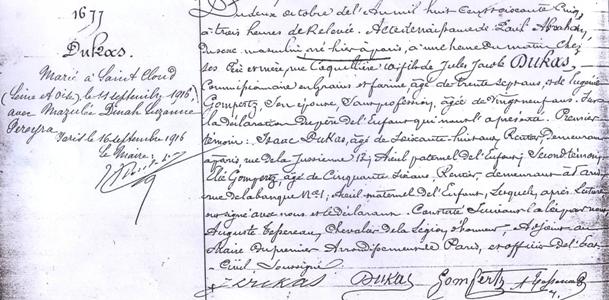 1677
Dukas.
Marié à Saint Cloud
(Seine et Oise) le 11 septembre 1916,
avec Dinah Suzanne
Pereyra
Paris le 16 septembre 1916
Le Maire
Du deux octobre de l'an mil huit cent soixante cinq,
à trois heures de Relevée. Acte de naissance de Paul Abraham,
Du sexe masculin né hier à Paris, à une heure du matin chez
ses Père et mère, rue Coquillière fils de Jules Jacob DUKAS,
Commissionnaire en Grains et farine âgé de trente sept ans, et de Eugénie
Gompertz, son épouse, sans profession, âgée de vingt neuf ans. Sur
la déclaration du père de l'Enfant qui nous l'a présenté. Premier
témoin: Isaac Dukas, âgé de soixante huit ans, Rentier, demeurant
à Paris rue de la Jussienne 12, Aieul paternel de l'Enfant; Second témoin,
Elie Gompertz, âgé de Cinquante ans, Rentier, demeurant à Paris
rue de la banque No 1, Aieul maternel de l'Enfant, Lesquels, après Lecture
ont signé avec nous et le déclarant. Constaté Suivant la loi par nous
Auguste Tessereau, Chevalier de la Légion d'honneur, Adjoint au
Maire du premier Arrondissement de Paris, et officier de l'état
Civil, Soussigné.
Dukas Gompertz A Tessereau